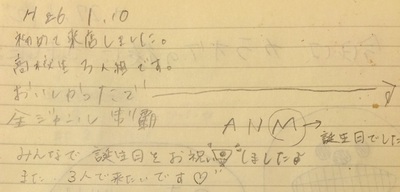 H26 1.10
初めて来店しました。
高校生3人組です。
おいしかったで
全ジャンル制覇
A N M → 誕生日でした
みんなで誕生日をお祝いしました
また3人で来たいです♡